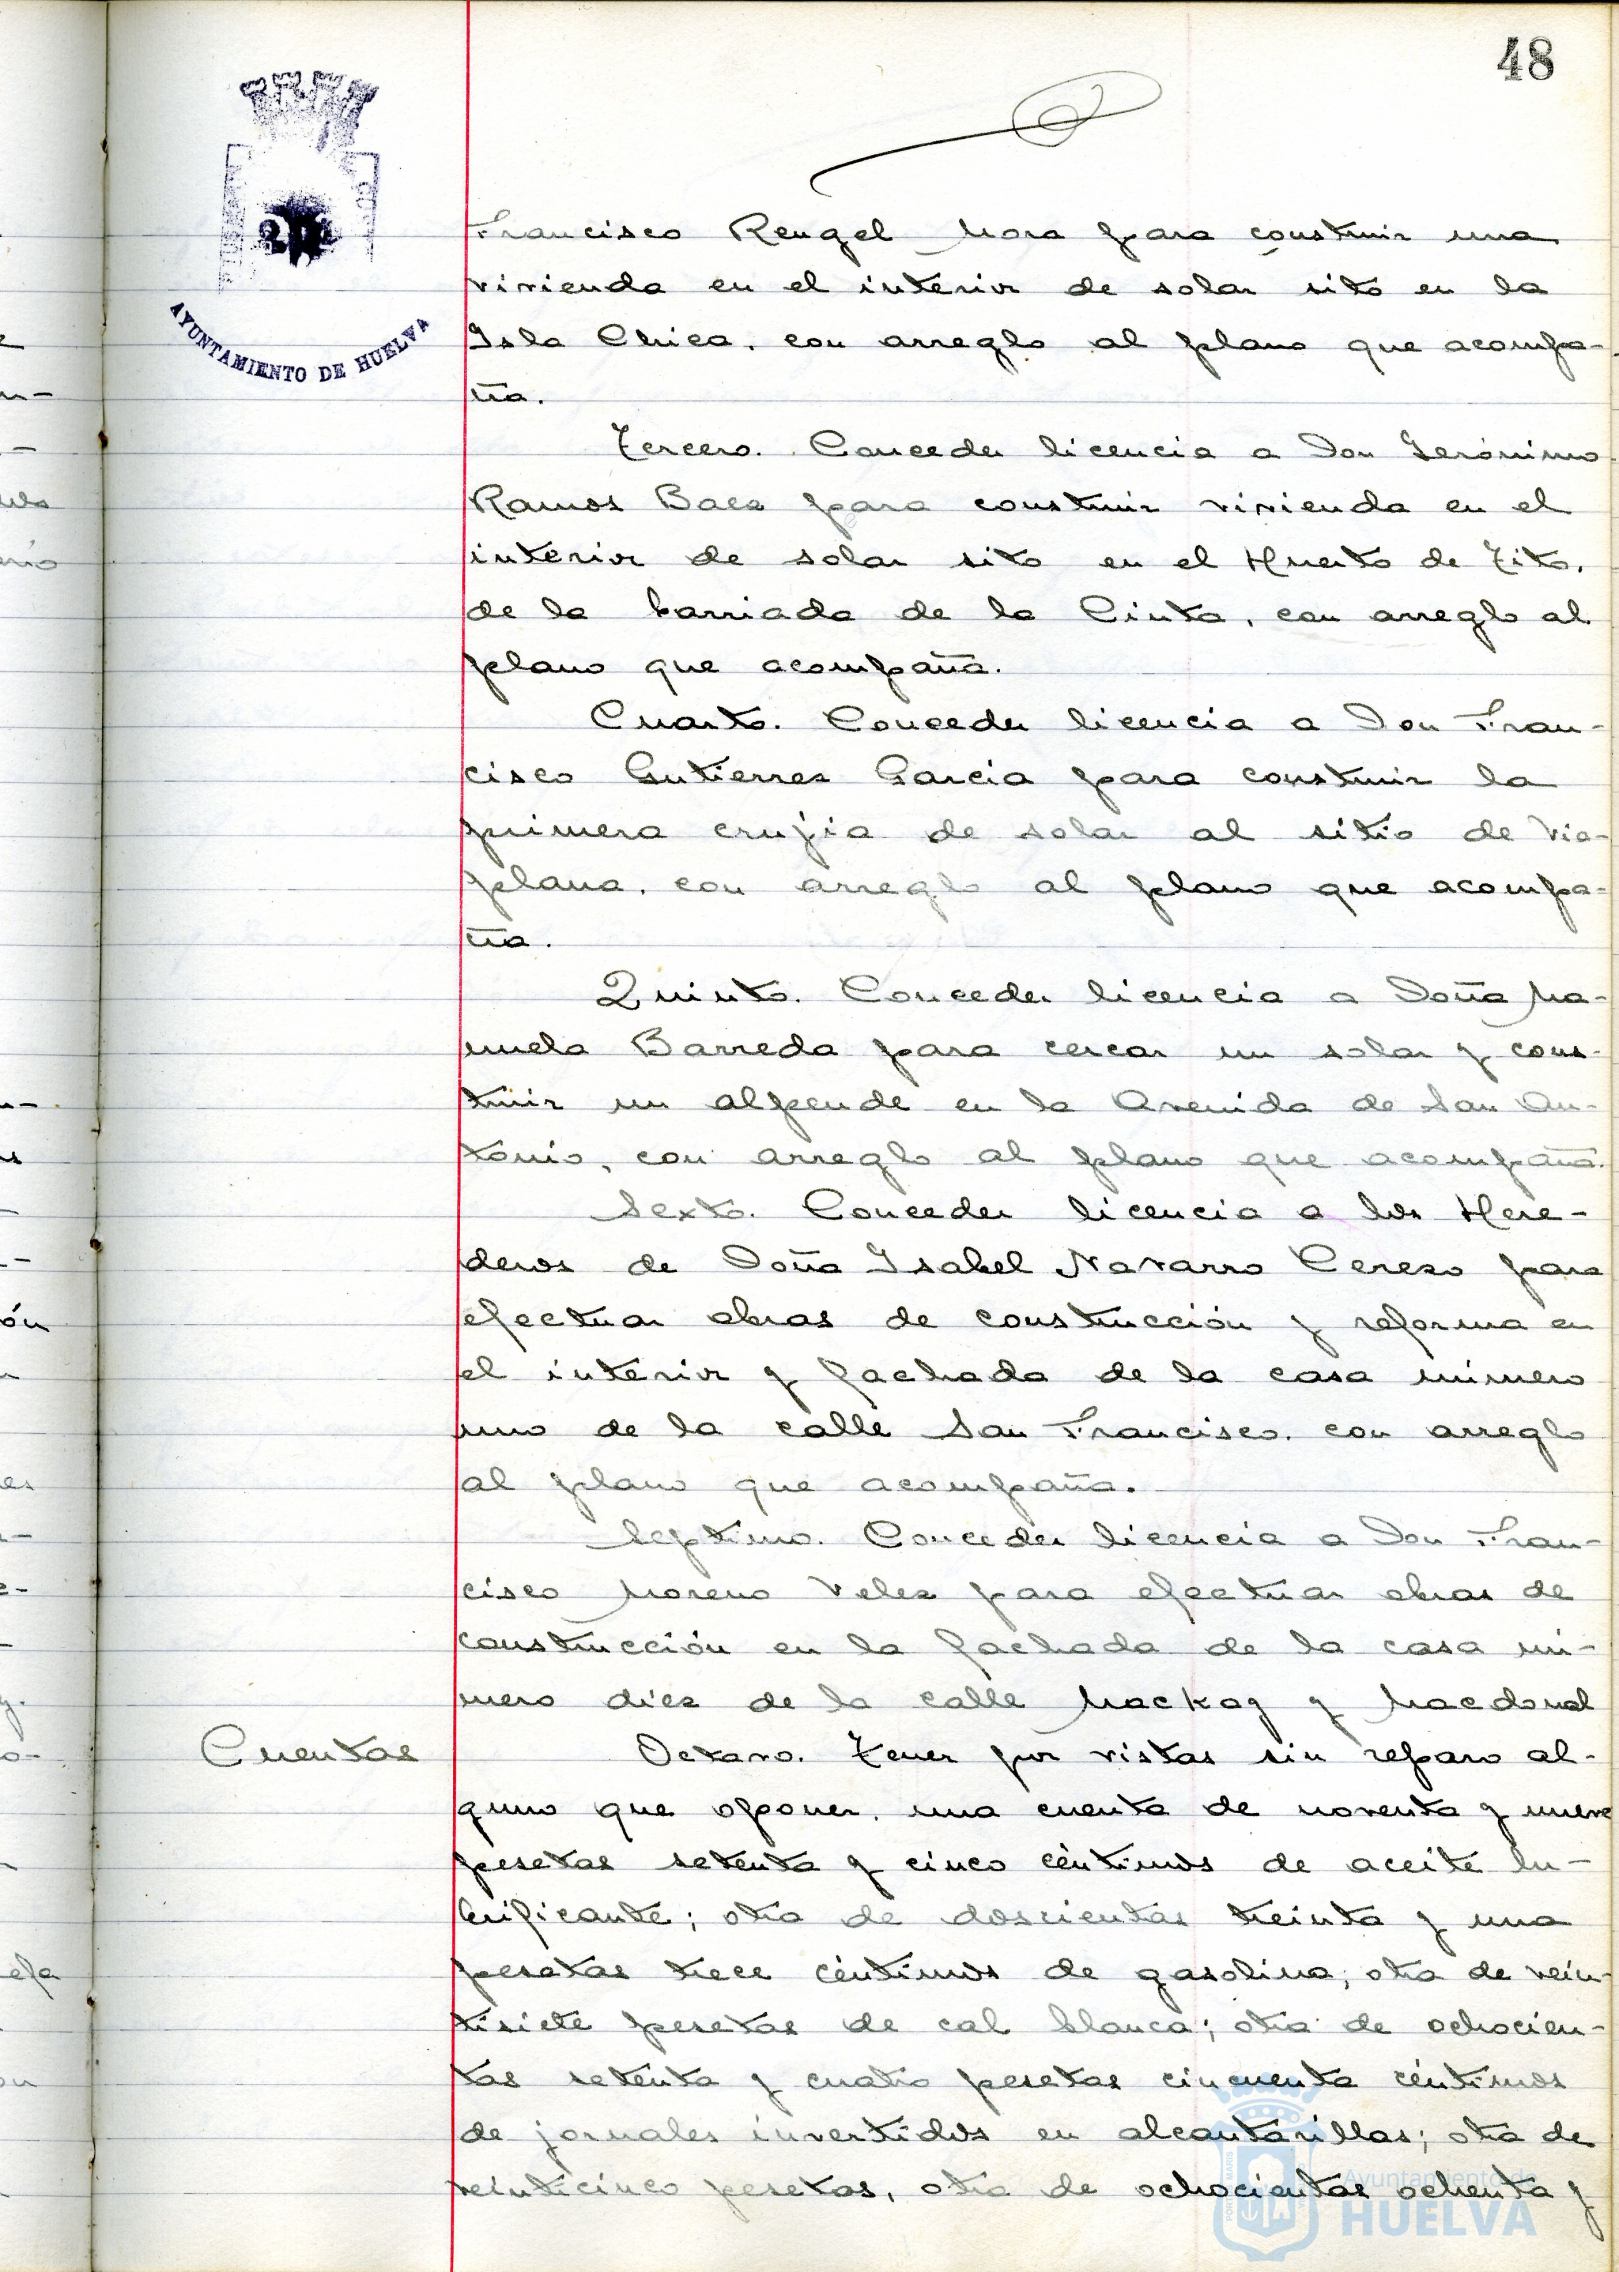 48
AYUNTAMIENTO DE HUELVA
Francisco Rengel Mora para construir una
vivienda en el interior de solar sito en la
Isla Chica, con arreglo al plano que acompa-
ña.
Tercero. Conceder licencia a Don Gerónimo
Ramos Baez para construir vivienda en el
interior de solar sito en el Huerto de Tito,
de la barriada de la Cinta, con arreglo al
plano que acompaña.
Cuarto. Conceder licencia a Don Fran-
cisco Gutierrez García para construir la
primera crujia de solar al sitio de Via-
plana, con arreglo al plano que acompa-
ña.
Quinto. Conceder licencia a Doña Ma-
nuela Barreda para cercar un solar y cons-
truir un alpende en la Avenida de San An-
tonio, con arreglo al plano que acompaña.
Sexto. Conceder licencia a los Here-
deros de Doña Isabel Navarro Cerezo para
efectuar obras de construcción y reforma en
el interior y fachada de la casa número
uno de la calle San Francisco, con arreglo
al plano que acompaña.
Septimo. Conceder licencia a Don Fran-
cisco Moreno Velez para efectuar obras de
construcción en la fachada de la casa nú-
mero diez de la calle Mackay y Macdonal
Cuentas
Octavo. Tener por vistas sin reparo al-
guno que oponer, una cuenta de noventa y nueve
pesetas setenta y cinco céntimos de aceite lu-
brificante; otra de doscientas treinta y una
pesetas trece céntimos de gasolina; otra de vein-
tisiete pesetas de cal blanca; otra de ochocien-
tas setenta y cuatro pesetas cincuenta céntimos
de jornales invertidos en alcantarillas; otra de
veinticinco pesetas, otra de ochocientas ochenta y
Ayuntamiento de
HUELVA